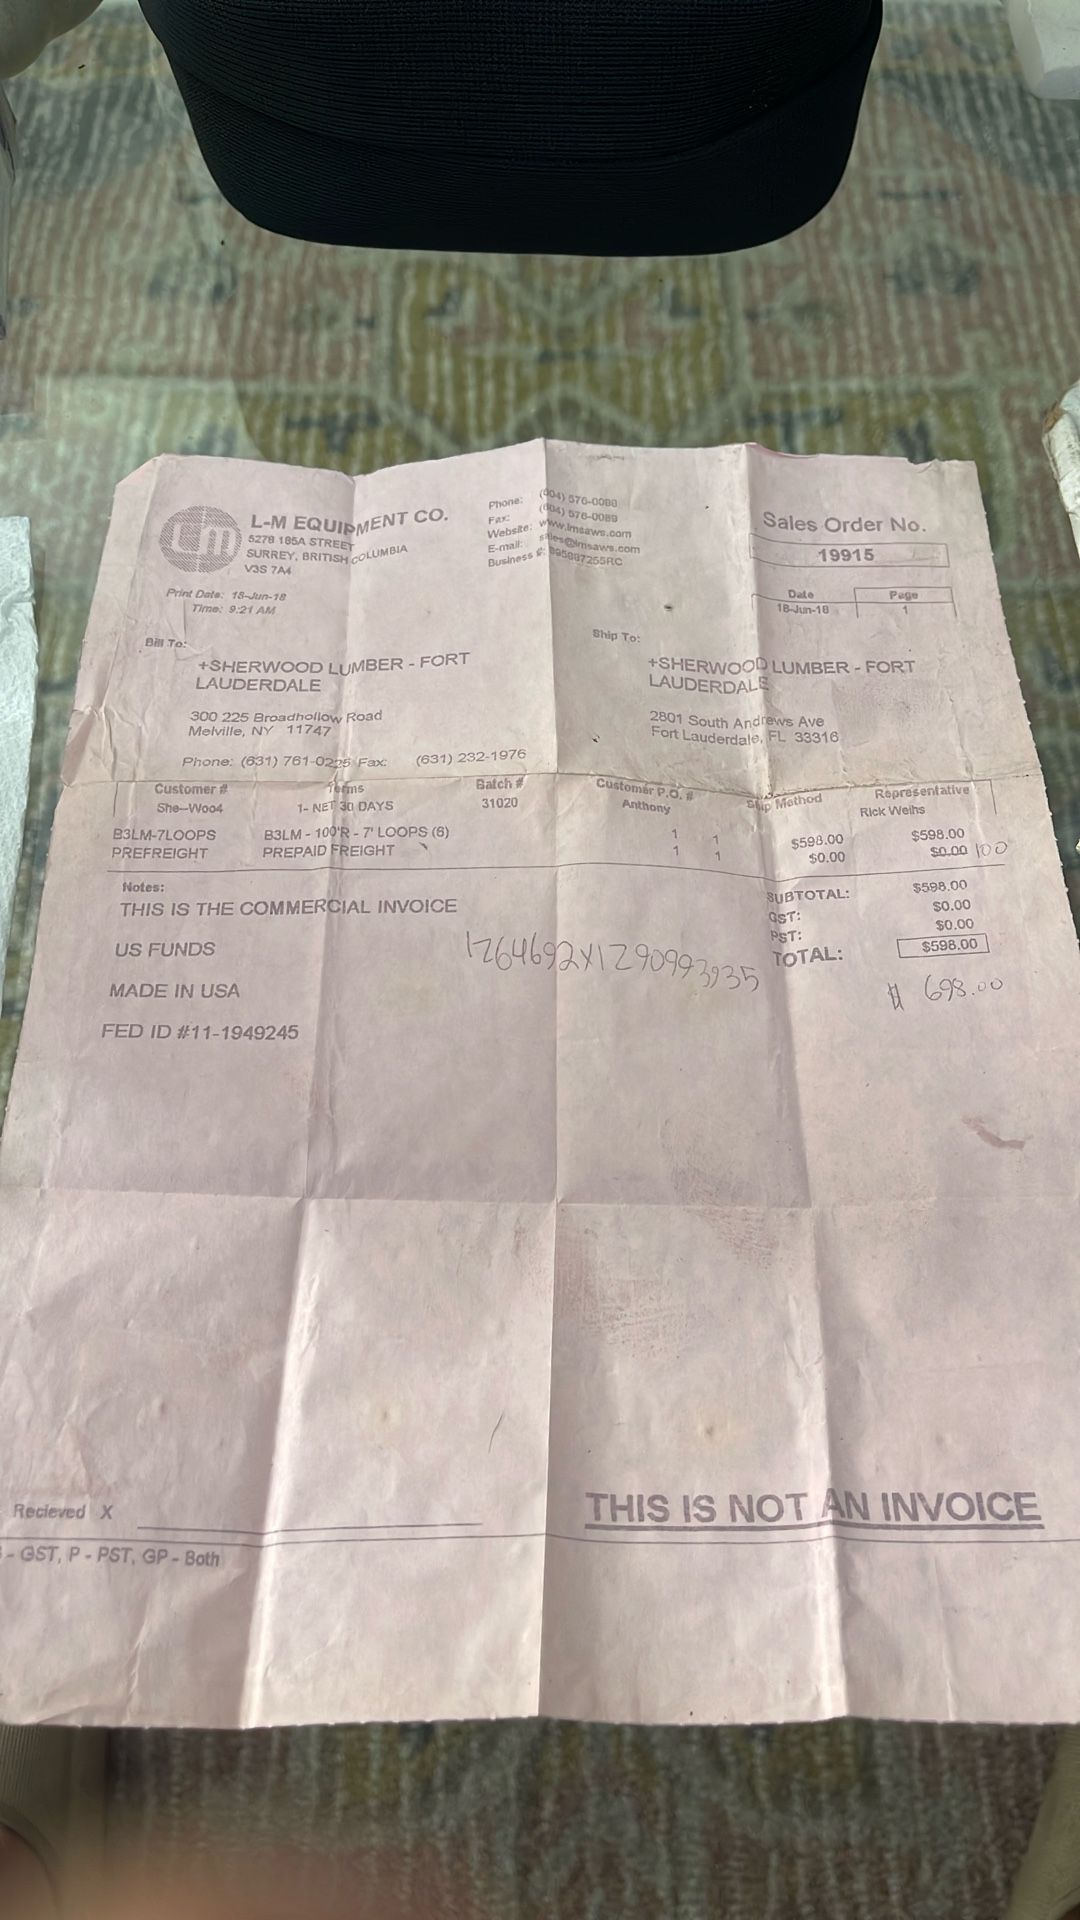 Lm
L-M EQUIPMENT CO.
5278 185A STREET
SURREY, BRITISH COLUMBIA
V3S 7A4
Phone: (604) 576-0080
Fax: (604) 576-0089
Website: www.lmsaws.com
E-mail: sales@lmsaws.com
Business #: 895887255RC
Sales Order No.
19915
Print Date: 18-Jun-18
Time: 9:21 AM
Date Page
18-Jun-18 1
Bill To:
+SHERWOOD LUMBER - FORT
LAUDERDALE
300 225 Broadhollow Road
Melville, NY 11747
Phone: (631) 761-0225 Fax: (631) 232-1976
Ship To:
+SHERWOOD LUMBER - FORT
LAUDERDALE
2801 South Andrews Ave
Fort Lauderdale, FL 33316
Customer # Terms Batch # Customer P.O. # Ship Method Representative
She--Woo4 1- NET 30 DAYS 31020 Anthony Rick Weihs
B3LM-7LOOPS B3LM - 100'R - 7' LOOPS (6) 1 1 $598.00 $598.00
PREFREIGHT PREPAID FREIGHT 1 1 $0.00 $0.00 100
Notes:
THIS IS THE COMMERCIAL INVOICE
US FUNDS
MADE IN USA
FED ID #11-1949245
1Z64692X1290993935
SUBTOTAL: $598.00
GST: $0.00
PST: $0.00
TOTAL: $598.00
$ 698.00
Recieved X
THIS IS NOT AN INVOICE
- GST, P - PST, GP - Both